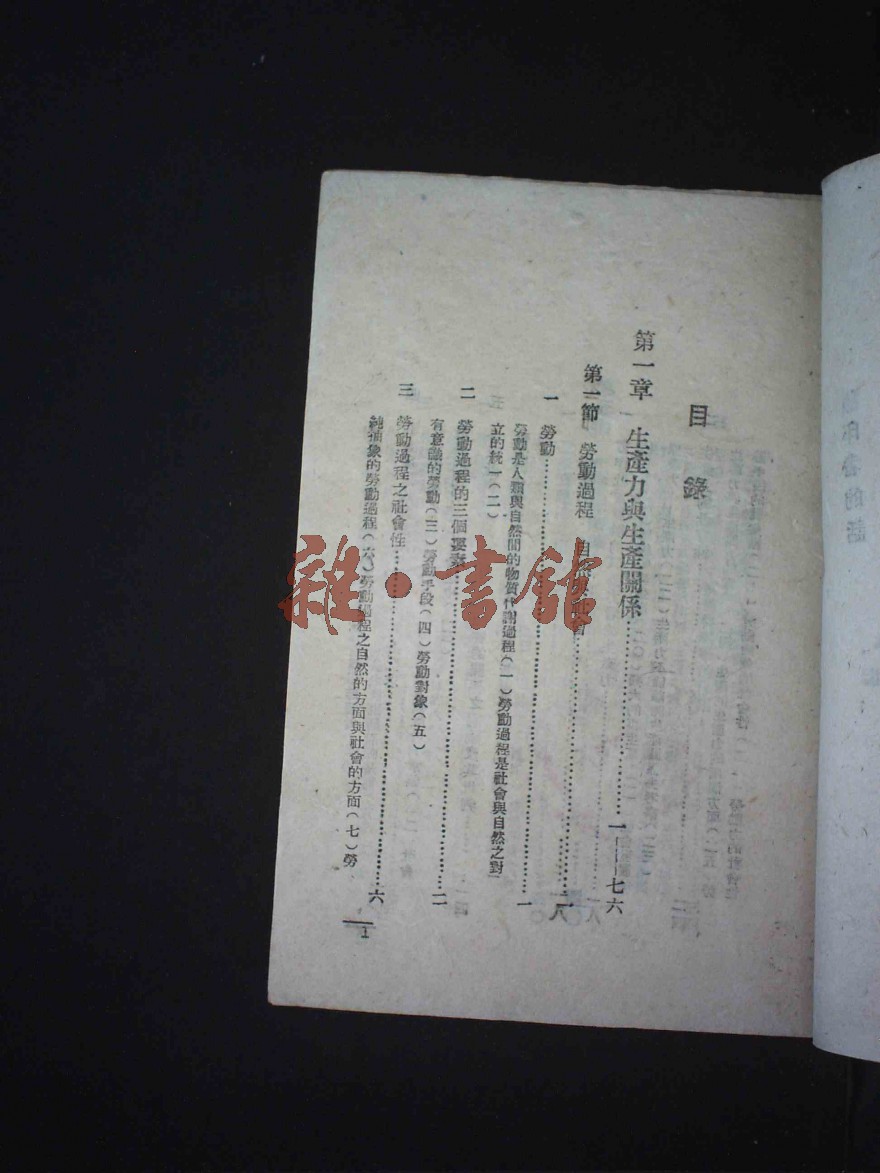 目錄
第一章 生產力與生產關係……一——七六
第一節 勞動過程 自然與社會……二八
一 勞動……一
勞動是人類與自然間的物質代謝過程(一)勞動過程是社會與自然之對
立的統一(二)
二 勞動過程的三個要素……二
有意識的勞動(三)勞動手段(四)勞動對象(五)
三 勞動過程之社會性……六
純抽象的勞動過程(六)勞動過程之自然的方面與社會的方面(七)勞
1
雜·書館